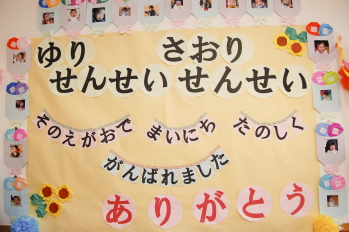 ゆり さおり
せんせい せんせい
そのえがおで まいにち たのしく
がんばれました
ありがとう